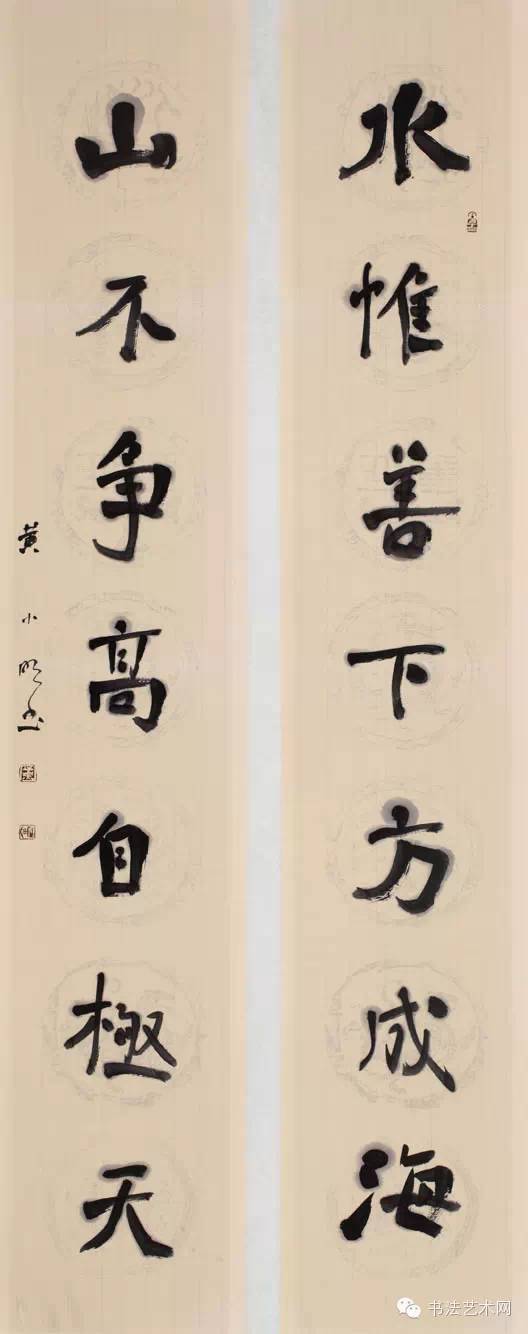 水惟善下方成海
山不争高自極天
黄小明书
书法艺术网